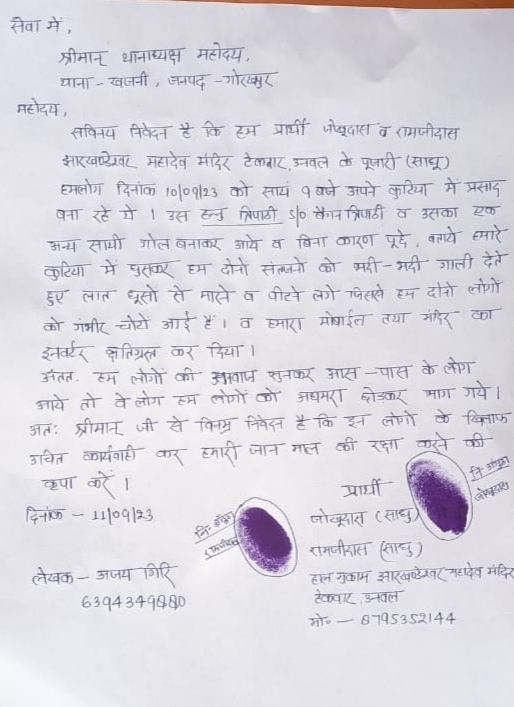 सेवा में,
श्रीमान् थानाध्यक्ष महोदय,
थाना - खजनी, जनपद - गोरखपुर
महोदय,
सविनय निवेदन है कि हम प्रार्थी जोखूदास व रामजीदास
झारखण्डेश्वर महादेव मंदिर टेकवार, उनवल के पूजारी (साधू)
हमलोग दिनांक 10/09/23 को सायं 9 बजे अपने कुटिया में प्रसाद
बना रहे थे । उस त्रिपाठी S/o त्रिपाठी व उसका एक
अन्य साथी गोल बनाकर आये व बिना कारण पूछे, बताये हमारे
कुटिया में घुसकर हम दोनो संतजनो को भद्दी-भद्दी गाली देते
हुए लात घूसों से मारने व पीटने लगे जिससे हम दोनो लोगों
को गंभीर चोटें आई हैं । व हमारा मोबाईल तथा मंदिर का
इनवर्टर क्षतिग्रस्त कर दिया ।
अंततः हम लोगों की आवाज सुनकर आस-पास के लोग
आये तो वे लोग हम लोगों को अधमरा छोडकर भाग गये ।
अतः श्रीमान् जी से विनम्र निवेदन है कि इन लोगों के खिलाफ
उचित कार्यवाही कर हमारी जान माल की रक्षा करने की
कृपा करें ।
दिनांक - 11/09/23
प्रार्थी
नि० अंगूठा
जोखूदास
जोखूदास (साधु)
नि० अंगूठा
रामजीदास (साधु)
लेखक - अजय गिरि
6394349880
हाल मुकाम झारखण्डेश्वर महादेव मंदिर
टेकवार, उनवल
मो० - 8795352144